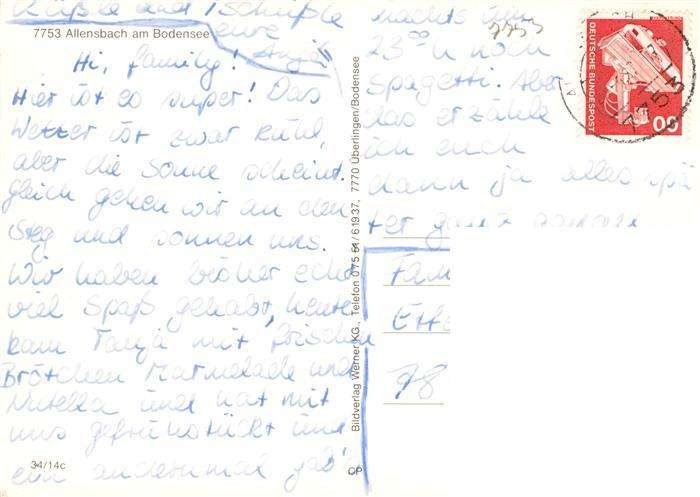 Küßle und Tschüßle
eure
Anja
7753 Allensbach am Bodensee
Hi, family!
Hier ist es super! Das
Wetter ist zwar kühl,
aber die Sonne scheint.
gleich gehen wir an den
Steg und sonnen uns.
Wir haben bisher echt
viel Spaß gehabt, heute
kam Tanja mit frischen
Brötchen Marmelade und
Nutella und hat mit
uns gefrühstückt und
ein andermal gab'
34/14c
nachts um
23⁰⁰ u noch
Spagetti. Aber
das erzähle
ich euch
dann ja alles spä
ter ganz genau
7753
Bildverlag Werner KG., Telefon 075 51/61937, 7770 Überlingen/Bodensee
DEUTSCHE BUNDESPOST
60
775
Fam
78